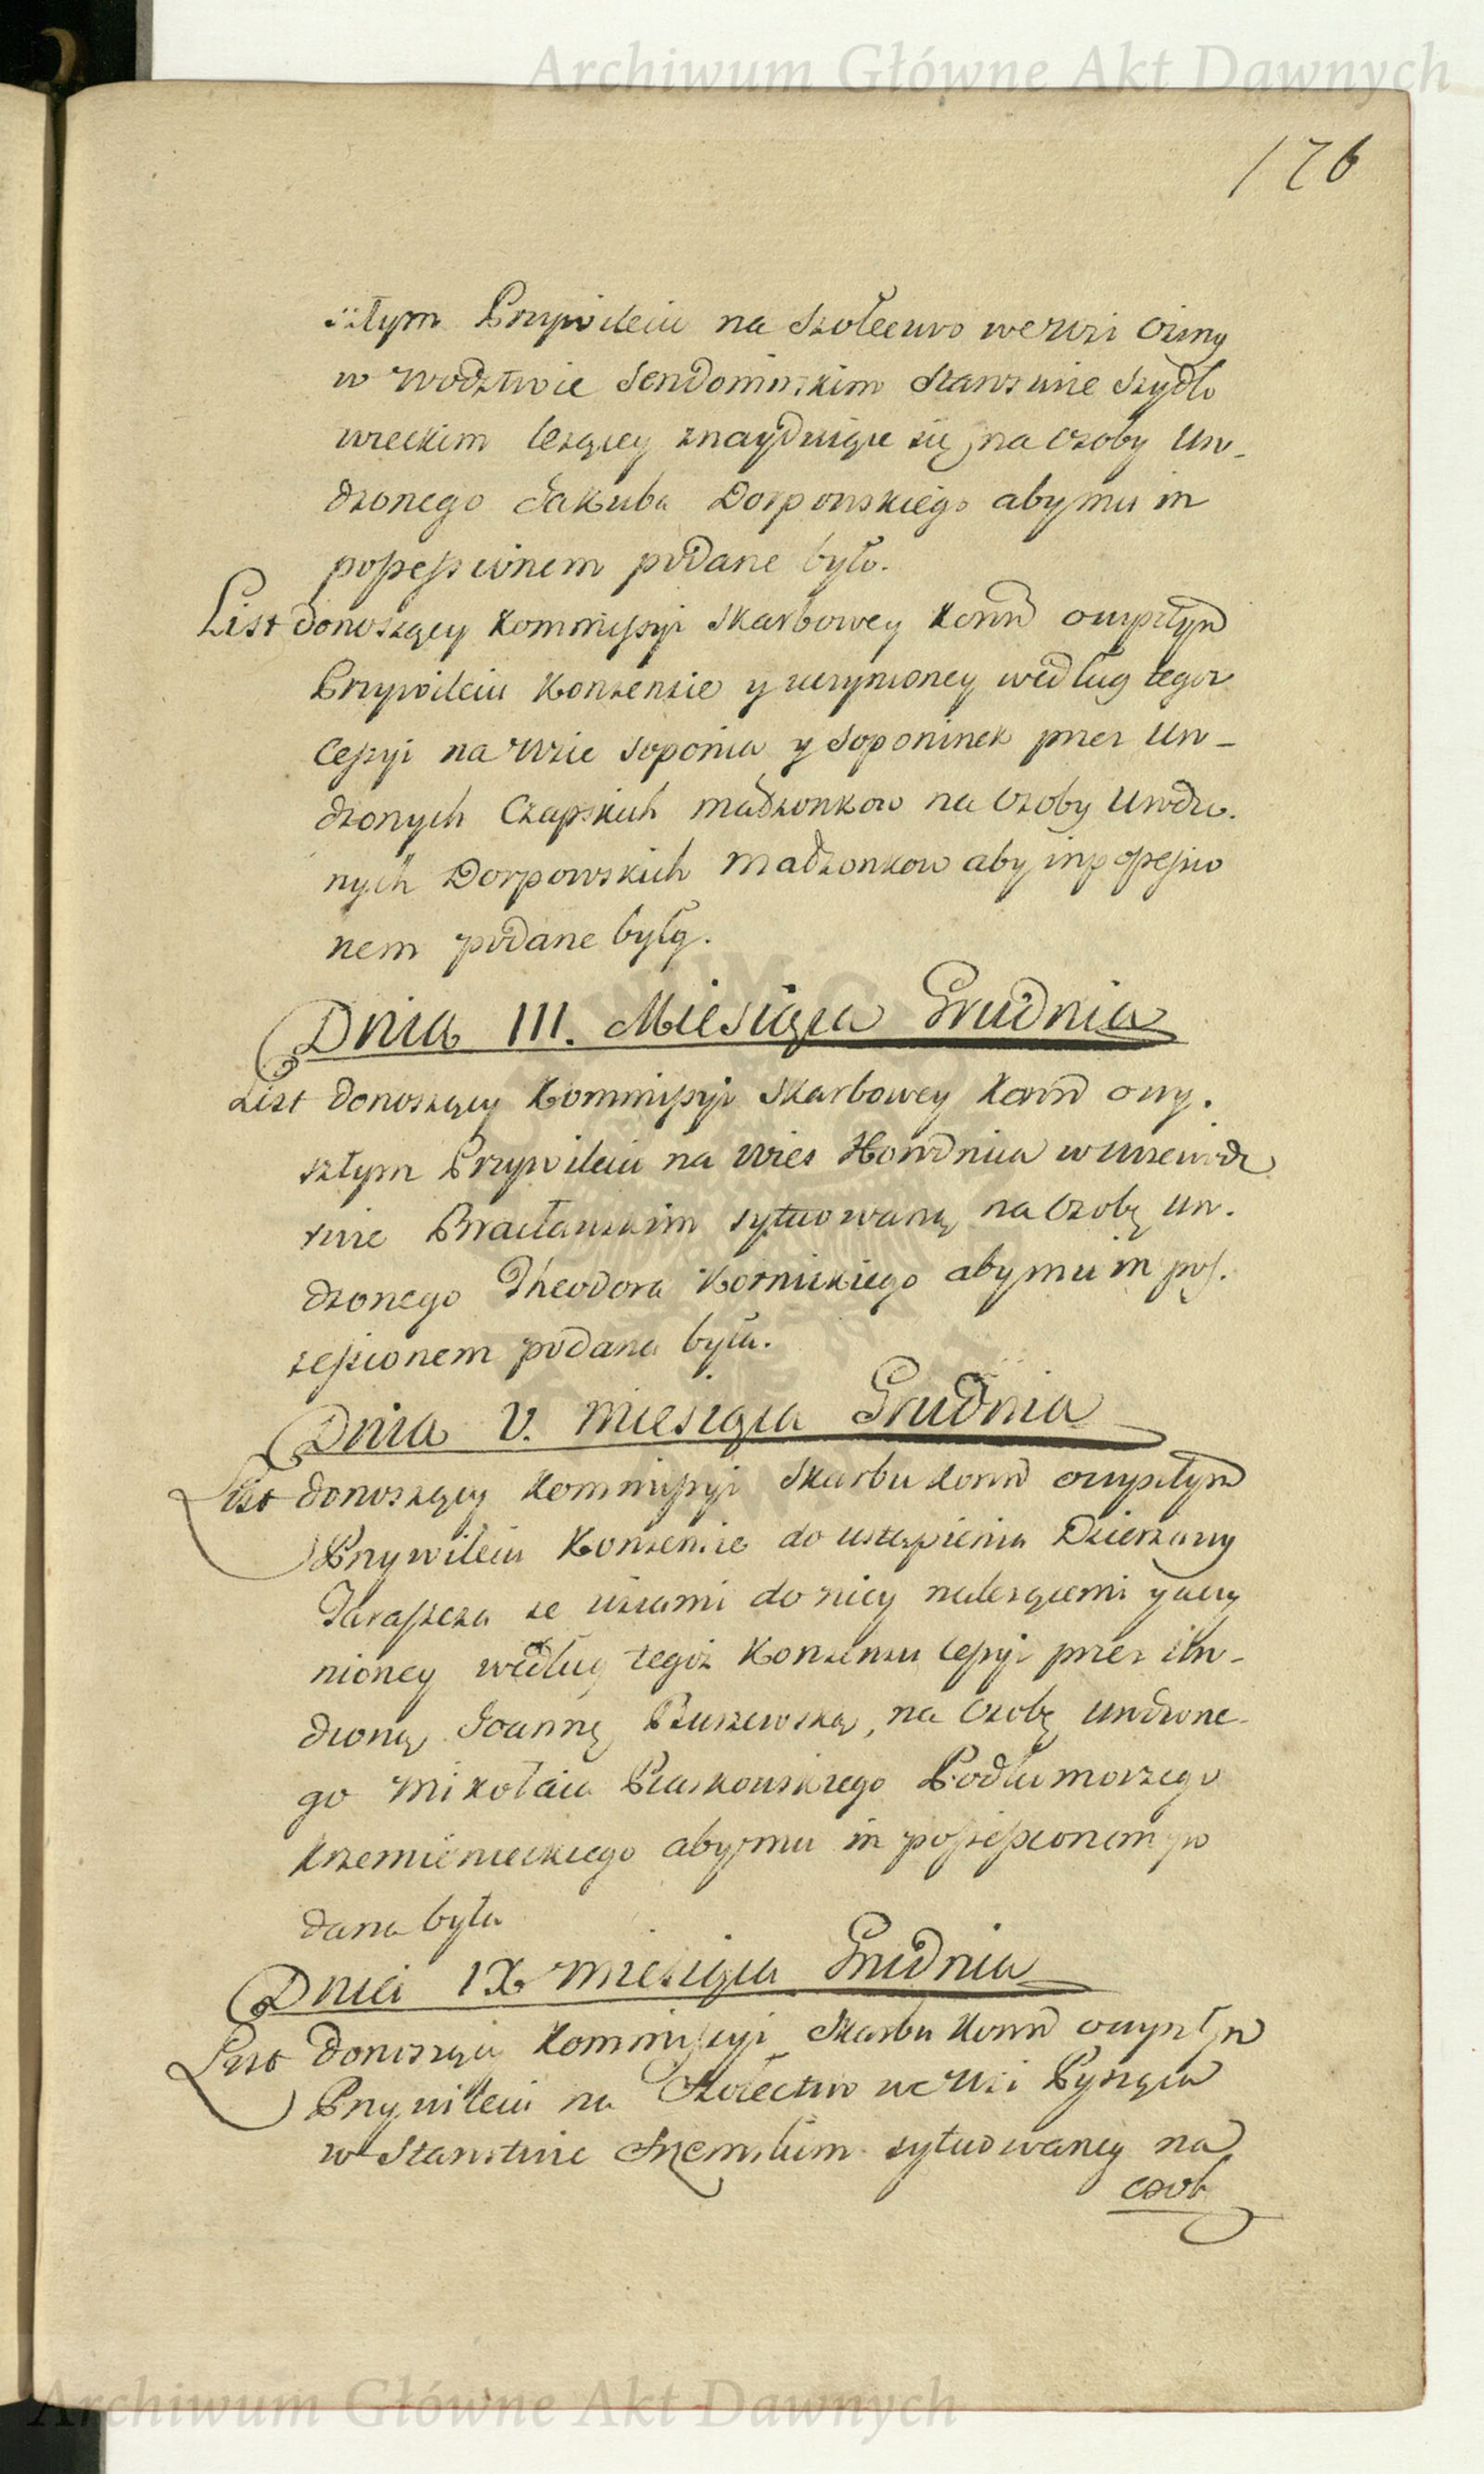 Archiwum Główne Akt Dawnych
176
szłym Przywileiu na Szołectwo we Wsi
w Wodztwie Sendomirskim Starostwie Szydło
wieckim leżącey znayduiące się, na Osoby Uro-
dzonego Jakuba Dorpowskiego aby mu in
possessionem podane było.
List donoszący Kommissyi Skarbowey Koron o wyszłym
Przywileiu Konsensie y uczynioney według tegoż
Cessyi na Wsie Soponia y Soponinek przez Uro-
dzonych Czapskich Małżonkow na Osoby Urodzo.
nych Dorpowskich Małżonkow aby im possessio
nem podane były.
Dnia III. Miesiąca Grudnia
List donoszący Kommissyi Skarbowey Koron o wy.
szłym Przywileiu na Wieś w Woiewodz
twie Bracławskim sytuowaną na Osobę Uro.
dzonego Theodora Kornickiego aby mu in pos.
sessionem podana była.
Dnia V. Miesiąca Grudnia
List donoszący Kommissyi Skarbu Koron o wyszłym
Przywileiu Konsensie do ustąpienia Dzierzawy
Taraszcza ze wsiami do niey należącemi y uczy
nioney według tegoż Konsensu Cessyi przez Uro-
dzoną Joannę na Osobę Urodzone-
go Mikołaia Piaskowskiego Podkomorzego
Krzemienieckiego aby mu in possessionem po
dana była
Dnia IX Miesiąca Grudnia
List donoszący Kommissyi Skarbu Koron o wyszłym
Przywileiu na Szołectwo we Wsi Pysząca
w Starostwie sytuowaney na
osob
Archiwum Główne Akt Dawnych